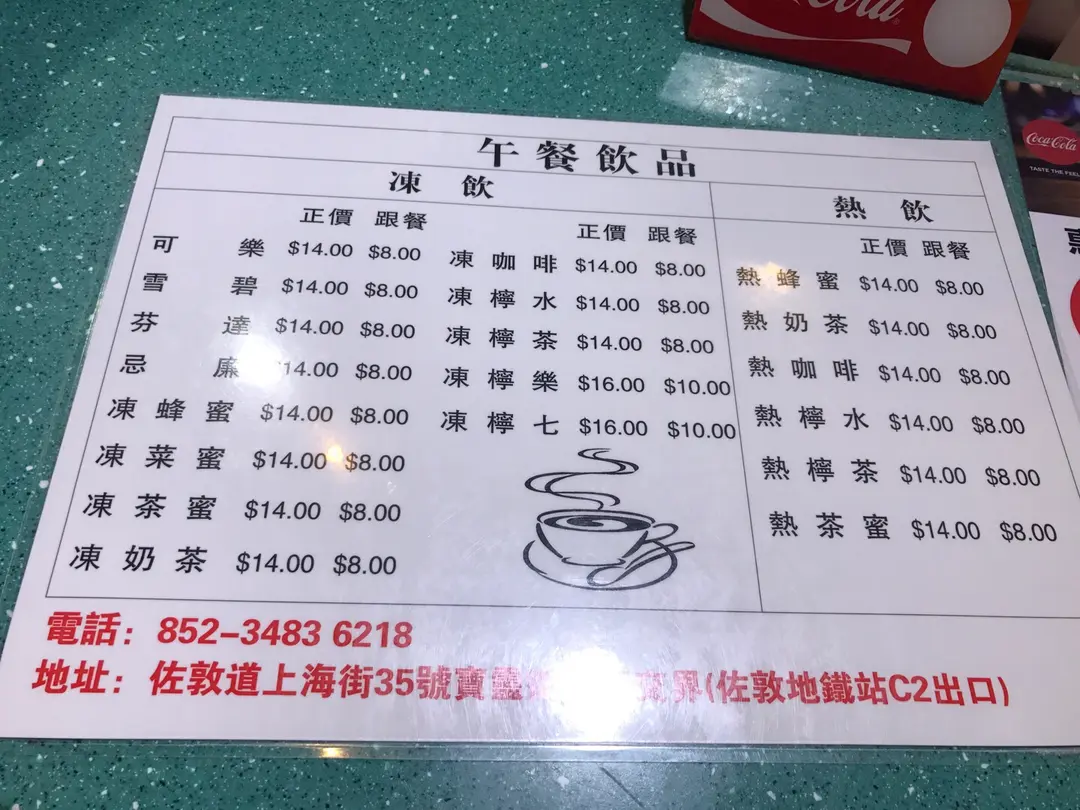 Coca-Cola
TASTE THE FEEL
午餐飲品
凍 飲
正價 跟餐
可樂 $14.00 $8.00
雪碧 $14.00 $8.00
芬達 $14.00 $8.00
忌廉 $14.00 $8.00
凍蜂蜜 $14.00 $8.00
凍菜蜜 $14.00 $8.00
凍茶蜜 $14.00 $8.00
凍奶茶 $14.00 $8.00
正價 跟餐
凍咖啡 $14.00 $8.00
凍檸水 $14.00 $8.00
凍檸茶 $14.00 $8.00
凍檸樂 $16.00 $10.00
凍檸七 $16.00 $10.00
熱 飲
正價 跟餐
熱蜂蜜 $14.00 $8.00
熱奶茶 $14.00 $8.00
熱咖啡 $14.00 $8.00
熱檸水 $14.00 $8.00
熱檸茶 $14.00 $8.00
熱茶蜜 $14.00 $8.00
電話：852-3483 6218
地址：佐敦道上海街35號寶靈 界(佐敦地鐵站C2出口)